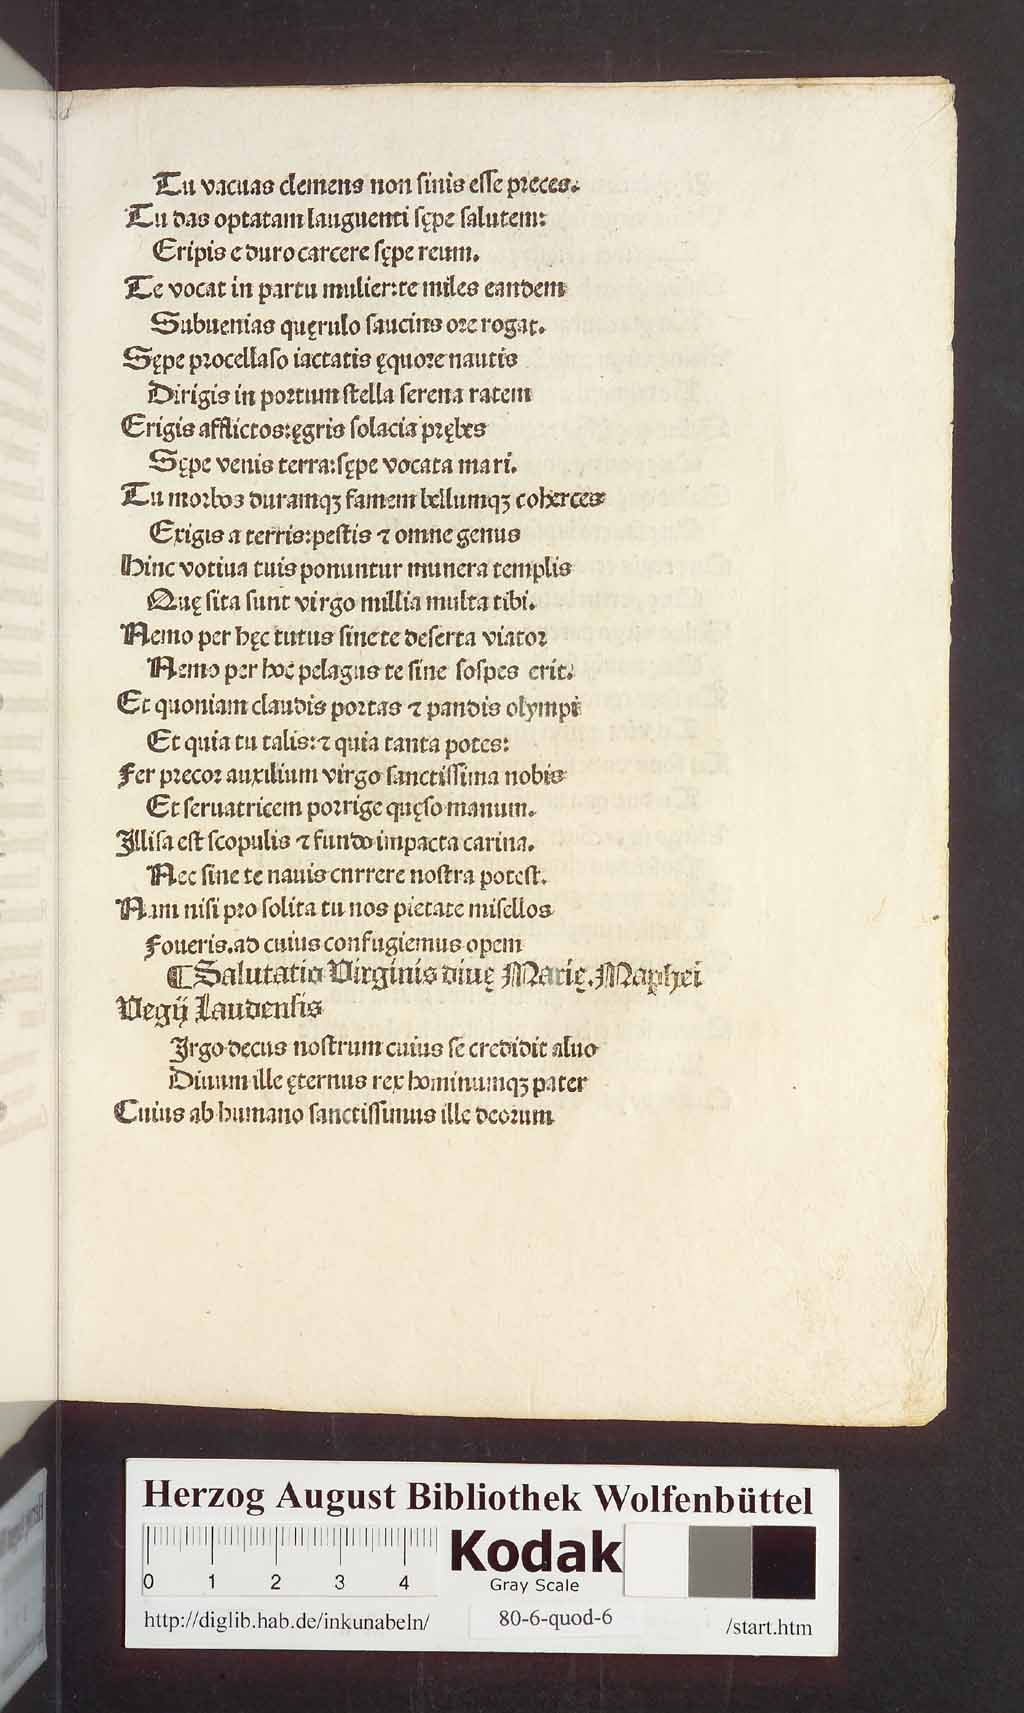 Tu vacuas clemens non ſinis eſſe preces.
Tu das optatam languenti ſępe ſalutem:
Eripis e duro carcere ſępe reum.
Te vocat in partu mulier: te miles eandem
Subuenias quęrulo ſaucius ore rogat.
Sępe procellaſo iactatis ęquore nautis
Dirigis in portum ſtella ſerena ratem
Erigis afflictos: ęgris ſolacia prębes
Sępe venis terra: ſępe vocata mari.
Tu morbos duramqꝫ famem bellumqꝫ coherces
Exigis a terris: peſtis ⁊ omne genus
Hinc votiua tuis ponuntur munera templis
Quę ſita ſunt virgo millia multa tibi.
Nemo per hęc tutus ſine te deſerta viator
Nemo per hoc pelagus te ſine ſoſpes erit.
Et quoniam claudis portas ⁊ pandis olympi
Et quia tu talis: ⁊ quia tanta potes:
Fer precor auxilium virgo ſanctiſſima nobis
Et ſeruatricem porrige quęſo manum.
Illiſa eſt ſcopulis ⁊ fundo impacta carina.
Nec ſine te nauis cnrrere noſtra poteſt.
Nam niſi pro ſolita tu nos pietate miſellos
Foueris. ad cuius confugiemus opem
¶ Salutatio Virginis diuę Marię. Maphei
Vegij Laudenſis
Irgo decus noſtrum cuius ſe credidit aluo
Diuum ille ęternus rex hominumqꝫ pater
Cuius ab humano ſanctiſſimus ille deorum
Herzog August Bibliothek Wolfenbüttel
0 1 2 3 4
Kodak
Gray Scale
http://diglib.hab.de/inkunabeln/ 80-6-quod-6 /start.htm